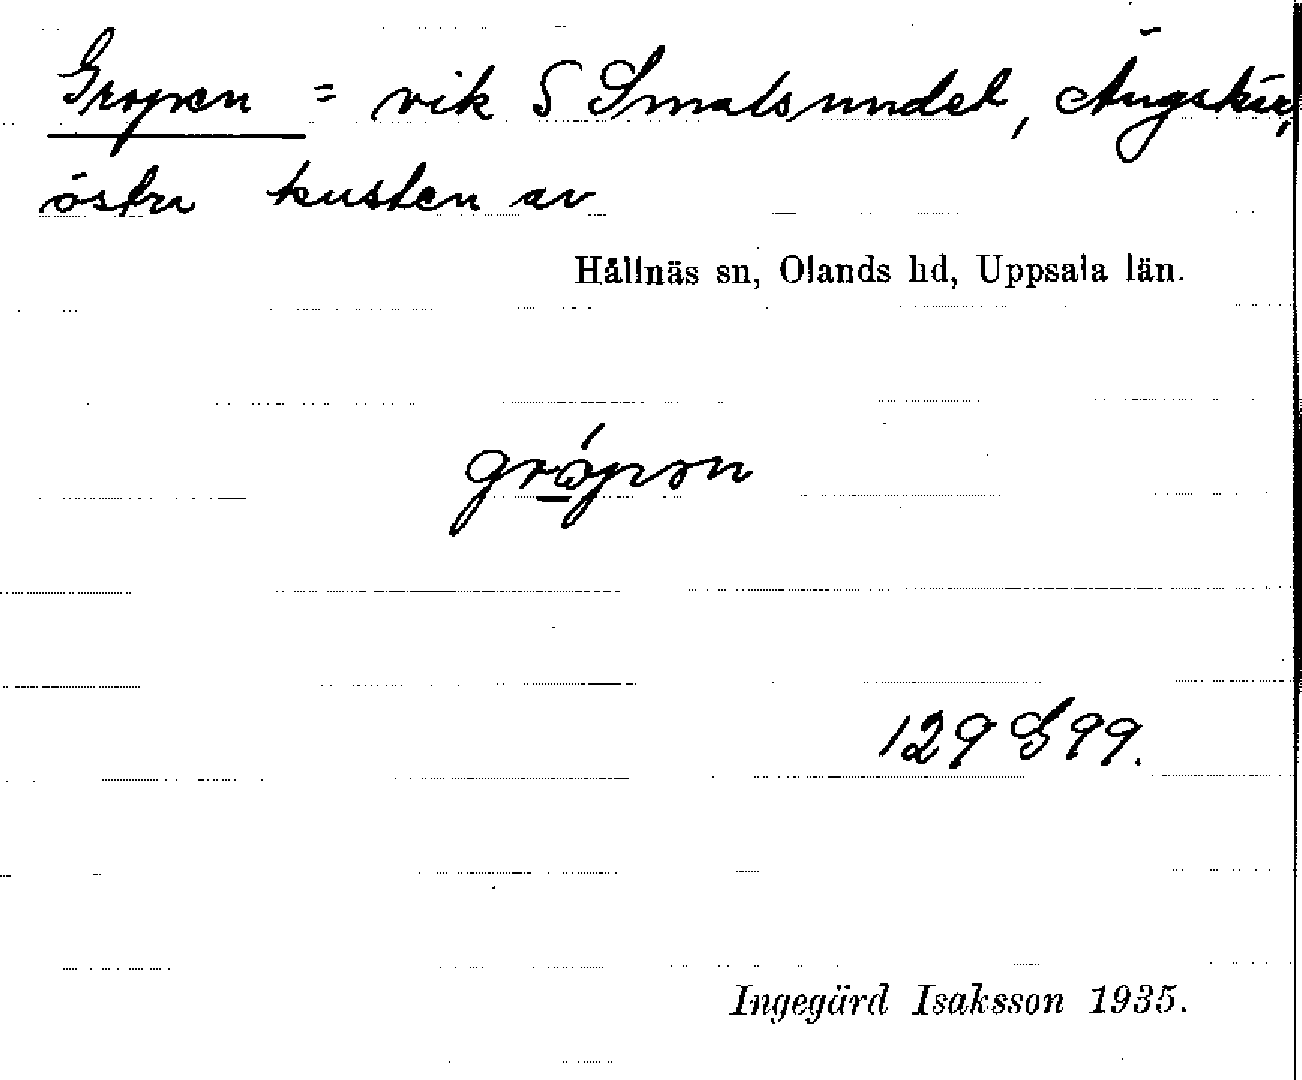 Gropen = vik S Smalsundet, Ängskär,
östra kusten av
Hållnäs sn, Olands hd, Uppsala län.
129 G 99.
Ingegärd Isaksson 1935.